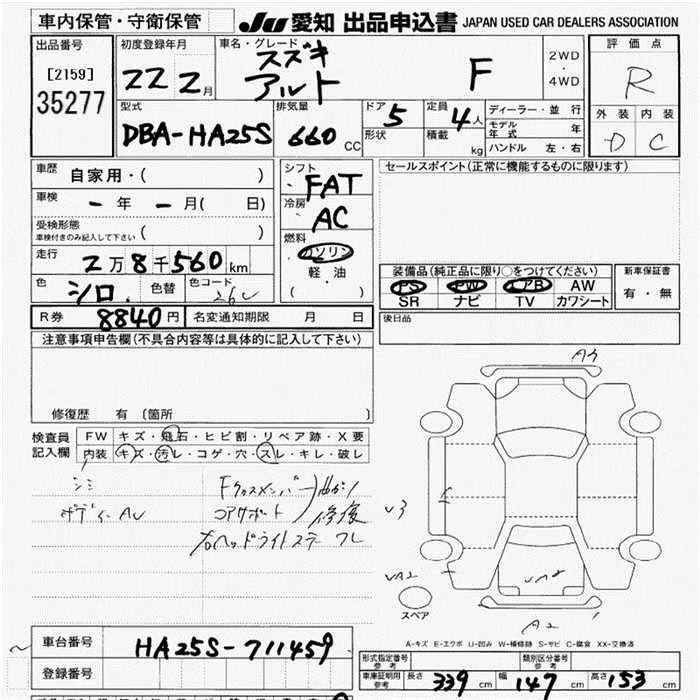 車内保管・守衛保管
JU 愛知 出品申込書 JAPAN USED CAR DEALERS ASSOCIATION
出品番号
[2159]
35277
初度登録年月
22 2月
車名・グレード
スズキ
アルト F
2WD
・
4WD
評価点
R
外装 内装
D C
型式
DBA-HA25S
排気量
660 CC
ドア 5
形状
定員 4人
積載 kg
ディーラー・並行
モデル年式 年
ハンドル 左・右
車歴 自家用・( )
車検 ー年 ー月( 日)
受検形態
車検付きのみ記入して下さい ( )
走行 2万8千560km
色 シロ. 色替 色コード 26U
シフト
FAT
冷房
AC
燃料
ガソリン
・
軽油
( )
セールスポイント(正常に機能するものに限ります)
装備品(純正品に限り○をつけてください)
PS PW エアB AW
SR ナビ TV カワシート
新車保証書
有・無
R券 8840円 名変通知期限 月 日
後日品
注意事項申告欄(不具合内容等は具体的に記入して下さい)
修復歴 有 〔箇所 〕
検査員
記入欄
FW キズ・飛石・ヒビ割・リペア跡・X要
内装 キズ・汚レ・コゲ・穴・スレ・キレ・破レ
シミ
ボディー AU
Fクロスメンバー
コアサポート
曲がり
修復
右ヘッドライトステー ワレ
A3
U3
UA2
UA2
A2
スペア
A-キズ E-エクボ U-凹み W-補修跡 S-サビ C-腐食 XX-交換済
車台番号 HA25S-711459
登録番号
形式指定番号
参考
類別区分番号
参考
車庫証明用
参考
長さ 339cm 幅 147cm 高さ 153cm